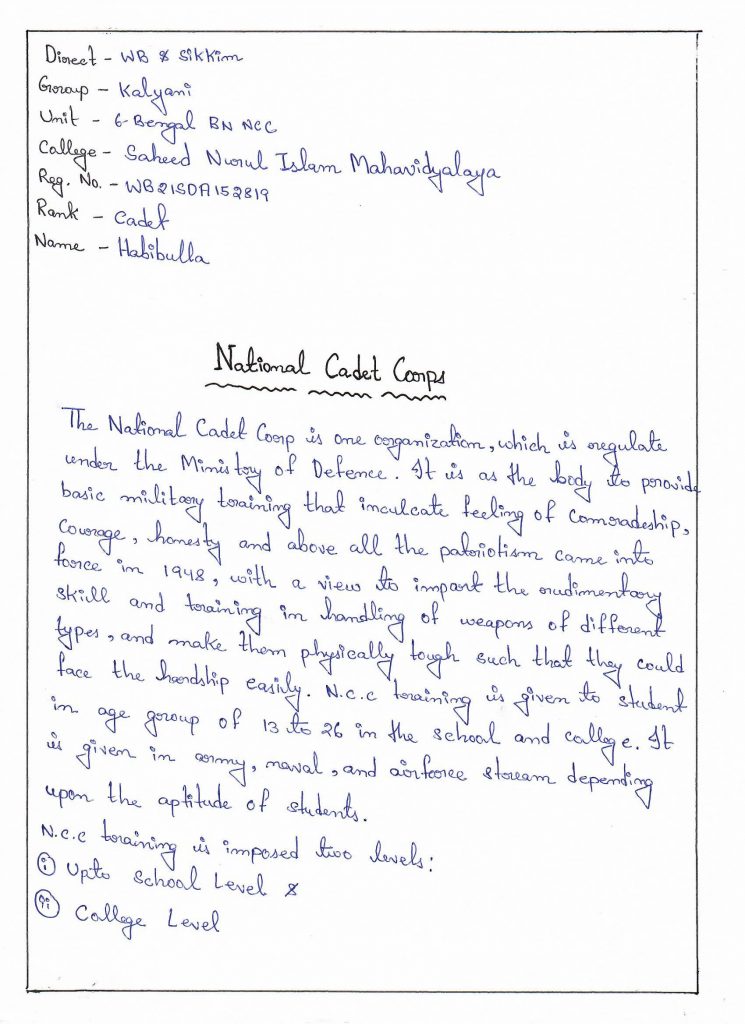 Direct - WB & Sikkim
Group - Kalyani
Unit - 6-Bengal BN NCC
College - Saheed Nurul Islam Mahavidyalaya
Reg. No. - WB21SDA152819
Rank - Cadet
Name - Habibulla
National Cadet Corps
The National Cadet Corp is one organization, which is regulate
under the Ministry of Defence. It is as the body to provide
basic military training that inculcate feeling of comradeship,
courage, honesty and above all the patriotism came into
force in 1948, with a view to impart the rudimentary
skill and training in handling of weapons of different
types, and make them physically tough such that they could
face the hardship easily. N.C.C training is given to student
in age group of 13 to 26 in the school and college. It
is given in army, naval, and airforce stream depending
upon the aptitude of students.
N.C.C training is imposed two levels:
(i) Upto School Level &
(ii) College Level